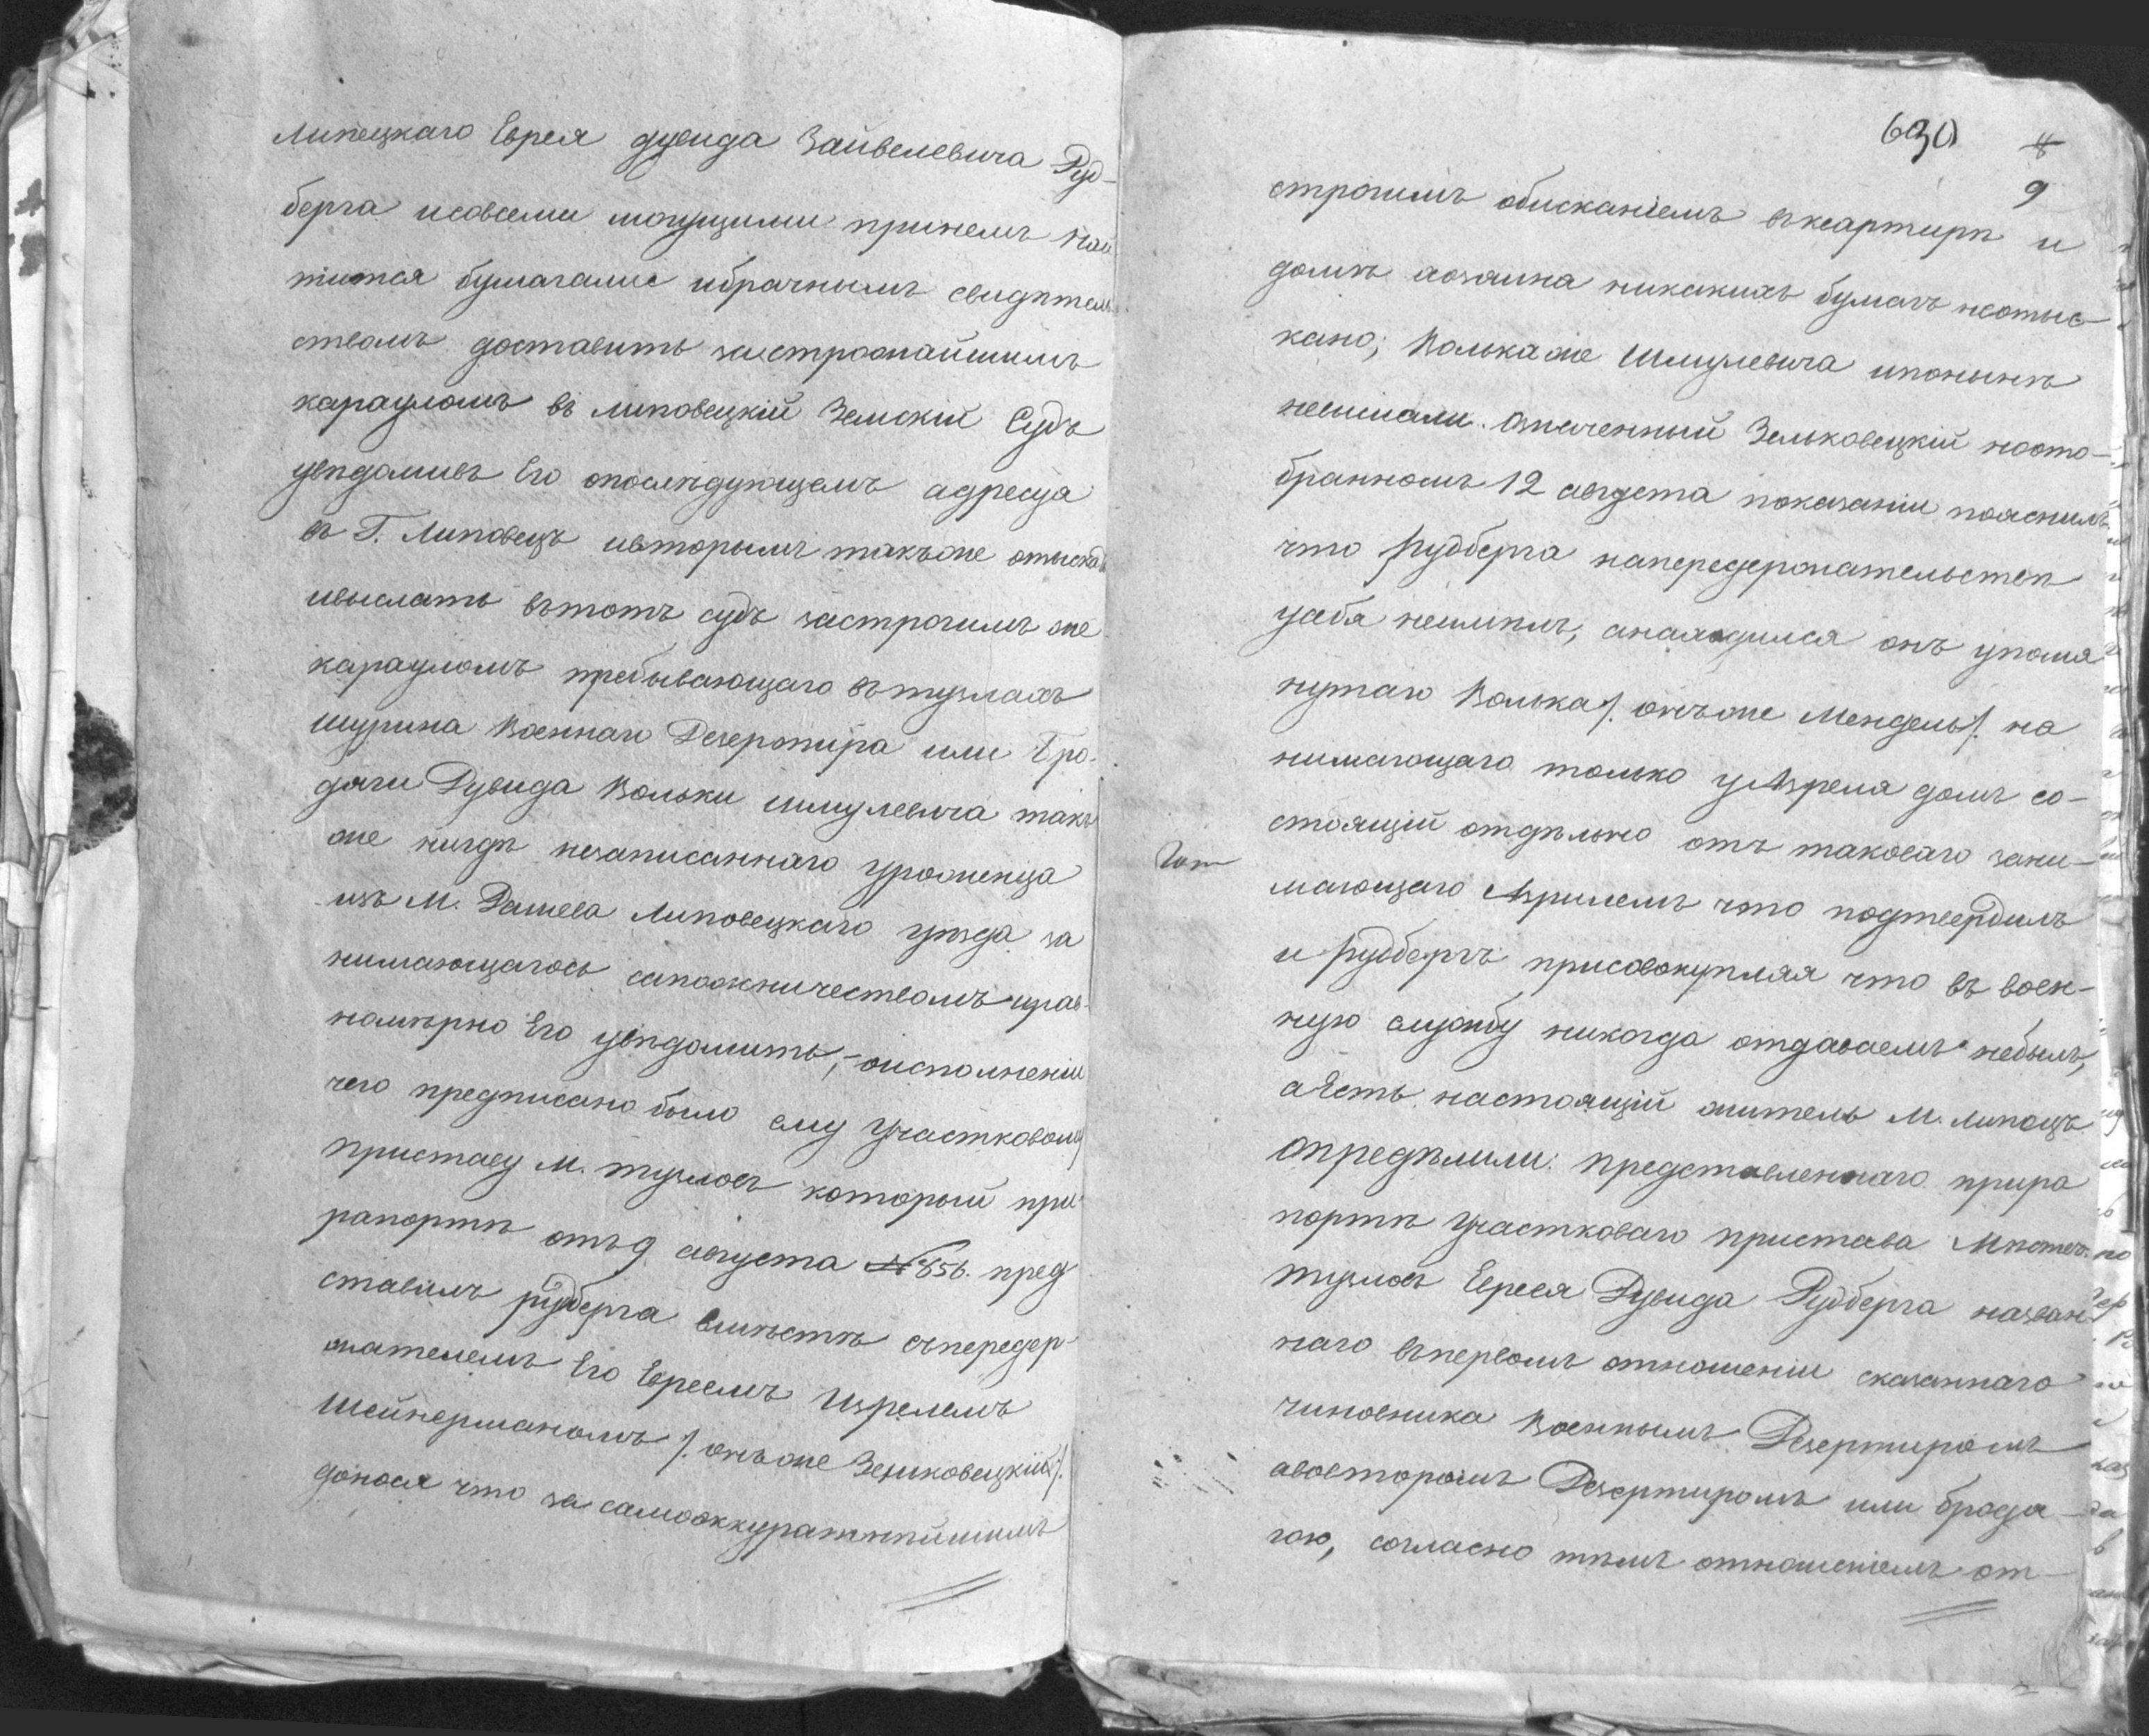 Липецкаго Еврея Дувида Зайвелевича Руд-
берга исовсеми могущими принемъ най
тится бумагами ибрачнымъ свидѣтель
ствомъ доставить застрожайшимъ
карауломъ въ Липовецкій Земскій Судъ
увѣдомивъ Его опослѣдующемъ адресуя
въ Г. Липовецъ ивторымъ такъже отыскать
ивыслать вътотъ судъ застрогимъ же
карауломъ пребывающаго вътузлахъ
шурина Военнаго Дезертира или Бро-
дяги Дувида Вольки Шмулевича такъ
же нигдѣ незаписаннаго уроженца
изъ М. Дашева Липовецкаго уѣзда за
нимающагось сапожничествомъ ирав-
номѣрно Его увѣдомить, – оисполненіи
чего предписано было ему Участковому
Приставу М. тузловъ который при
рапортѣ отъ 9 августа № 856. пред
ставилъ рудберга вмѣстѣ съпередер-
жателемъ Его Евреемъ Изрелемъ
Шейнерманомъ /. онъже Зельковецкій /.
донося что за самоаккуратнѣйшимъ
630 8
9
строгимъ обисканіемъ въквартирѣ и
домѣ хозяина никакихъ бумагъ неотыс-
кано; Волькаже Шмулевича ипонынѣ
невысилали. Означенный Зельковецкій наото-
бранномъ 12 августа показаніи пояснилъ
что рудберга напередержательствѣ
усебя неимѣлъ, анаходился онъ упомя
нутаго Волька /. онъже Мендель /. на
нимающаго только уИзреля домъ со-
стоящій отдѣльно отъ таковаго зани-
мающаго Изрилемъ что подтвердилъ
и рудбергъ присовокупляя что въ воен-
ную службу никогда отдаваемъ небылъ,
аЕсть настоящій житель М. Липецъ.
Опредѣлили: представленнаго прира
портѣ Участковаго пристава Мѣстеч.
тузловъ Еврея Дувида Рудберга назван
наго въпервомъ отношеніи сказаннаго
чиновника Военнымъ Дезертиромъ
авовторомъ Дезертиромъ или бродя-
гою, согласно тѣмъ отношеніемъ от-